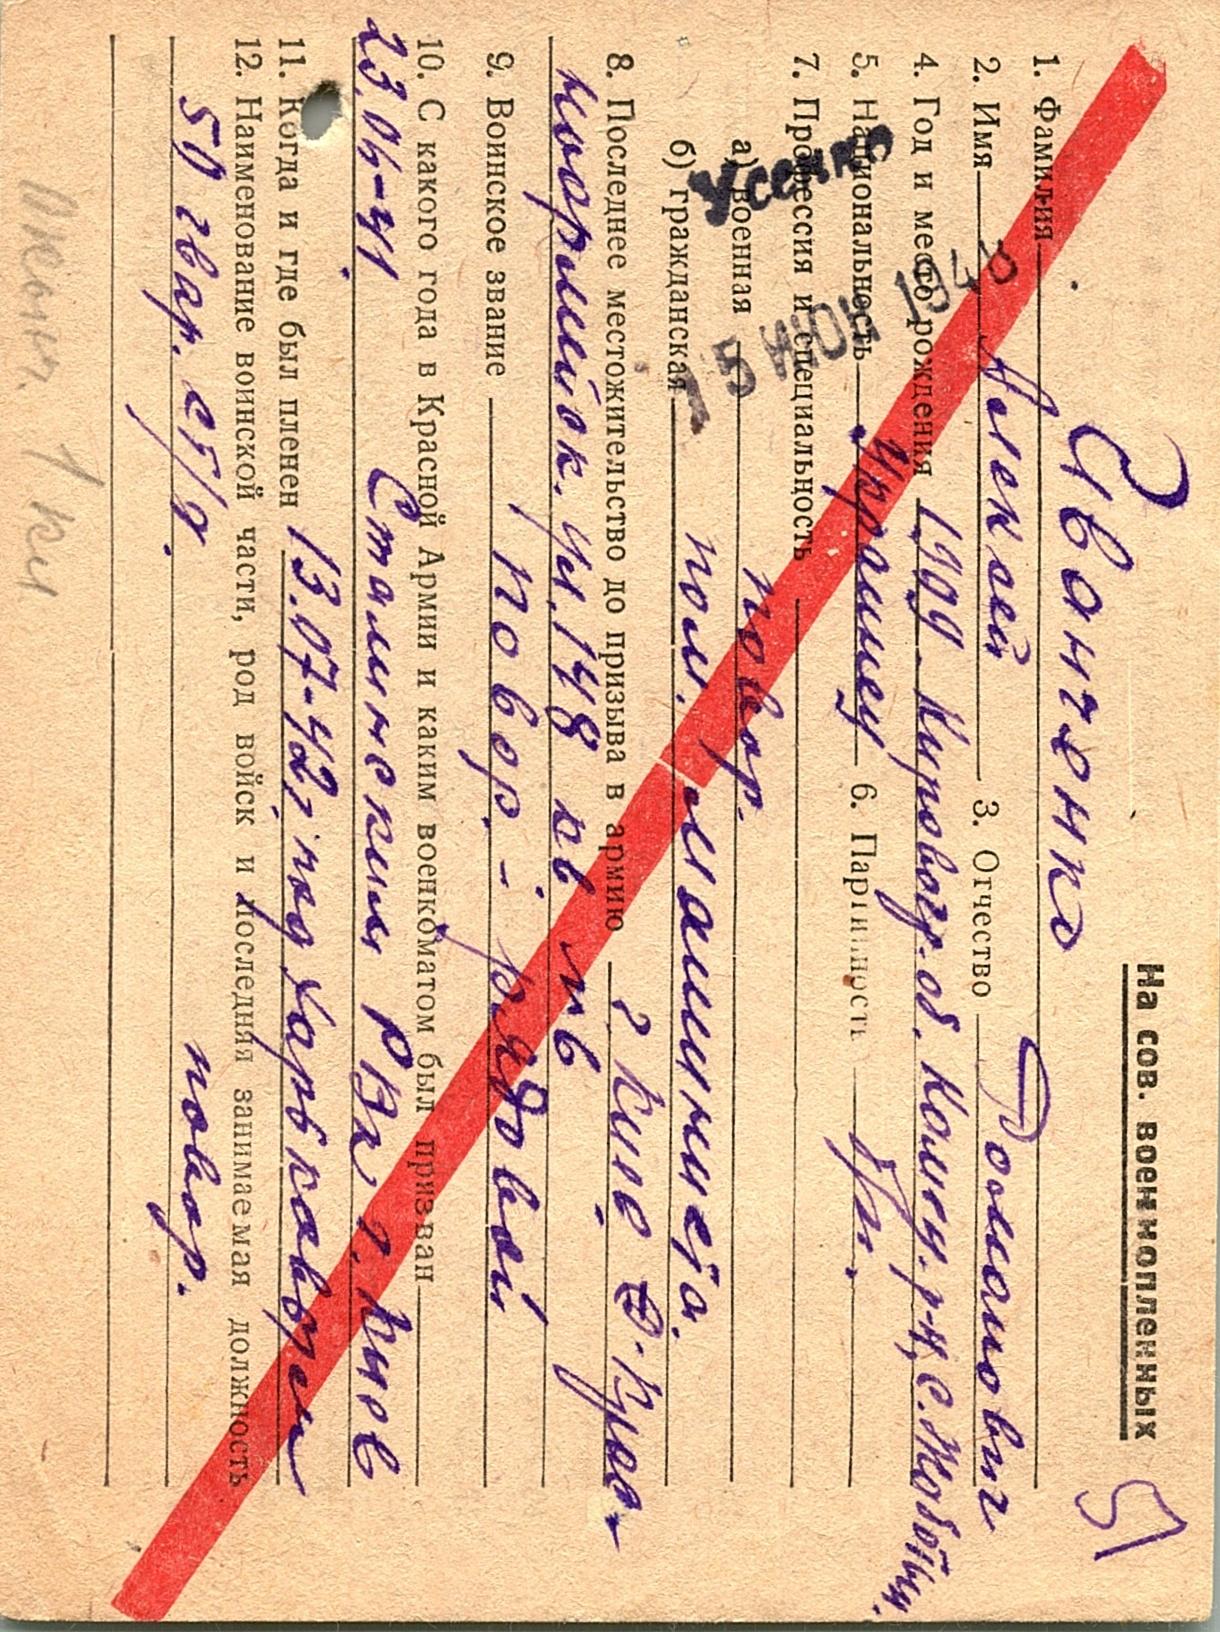 На сов. военнопленных
51
1. Фамилия Иванченко
2. Имя Алексей 3. Отчество Романович
4. Год и место рождения 1909 Кировогр. об.
5. Национальность Украинец 6. Партийность б/п.
7. Профессия и специальность
а) военная повар.
б) гражданская пом. машиниста.
Усенко
15 ИЮН 1946
8. Последнее местожительство до призыва в армию г. Киев
ул. 148 кв
9. Воинское звание повар. - рядовой
10. С какого года в Красной Армии и каким военкоматом был призван
23.06-41 Сталинским РВк, г. Киев
11. Когда и где был пленен 13.07-42, под Харьковом
12. Наименование воинской части, род войск и последняя занимаемая должность
50 гвар. сп/д. повар.
1 кл.